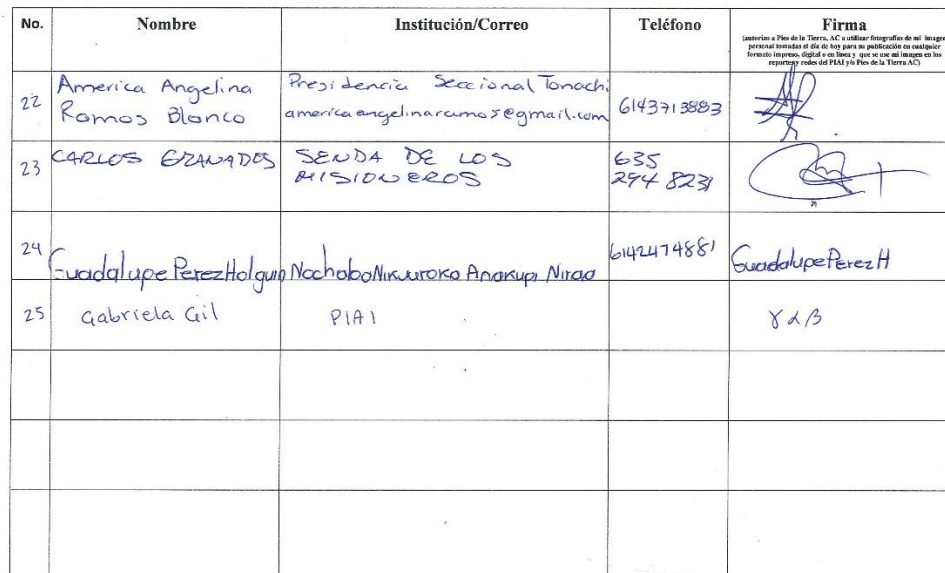 No. Nombre Institución/Correo Teléfono Firma
(autorizo a Pies de la Tierra, AC a utilizar fotografías de mi imagen
personal tomadas el día de hoy para su publicación en cualquier
formato impreso, digital o en línea y que se use mi imagen en los
reportes y redes del PIAI y/o Pies de la Tierra AC)
22 America Angelina Presidencia Seccional Tonachi
Ramos Blanco americaangelinaramos@gmail.com 6143713883
23 CARLOS GRANADOS SENDA DE LOS 635
MISIONEROS 294 8231
24 6142474881
Guadalupe Perez Holguin Nirao Guadalupe Perez H
25 Gabriela Gil PIAI γαβ